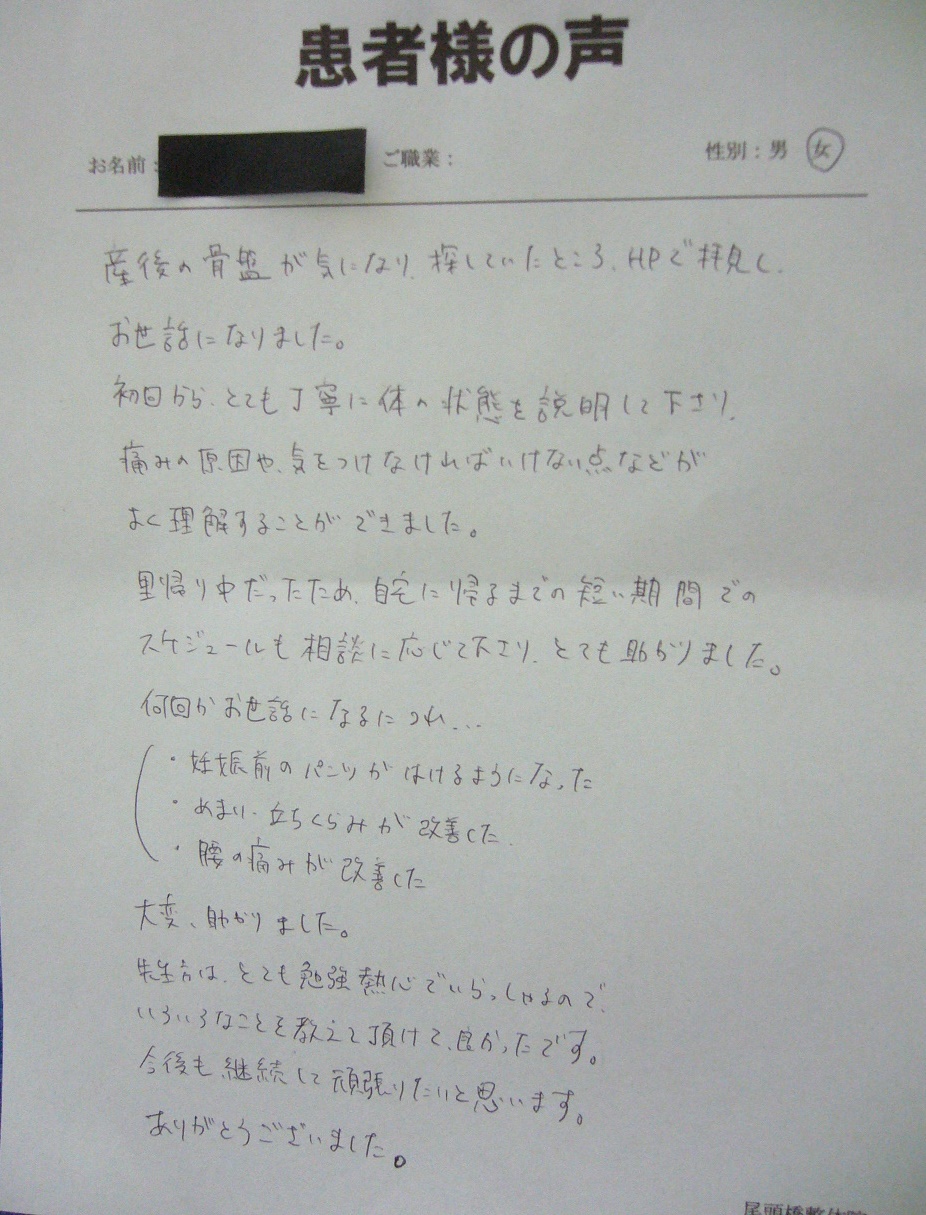 患者様の声
お名前: ご職業: 性別:男 女
産後の骨盤が気になり、探していたところ、HPで拝見し、
お世話になりました。
初回から、とても丁寧に体の状態を説明して下さり、
痛みの原因や、気をつけなければいけない点などが
よく理解することができました。
里帰り中だったため、自宅に帰るまでの短い期間での
スケジュールも相談に応じて下さり、とても助かりました。
何回かお世話になるにつれ...
・妊娠前のパンツがはけるようになった
・めまい・立ちくらみが改善した.
・腰の痛みが改善した
大変、助かりました。
先生方は、とても勉強熱心でいらっしゃるので、
いろいろなことを教えて頂けて、良かったです。
今後も継続して頑張りたいと思います。
ありがとうございました。
尾頭橋整体院